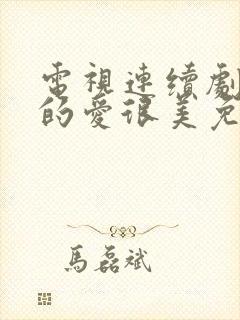 電視連續劇
的愛很美免
馬磊斌